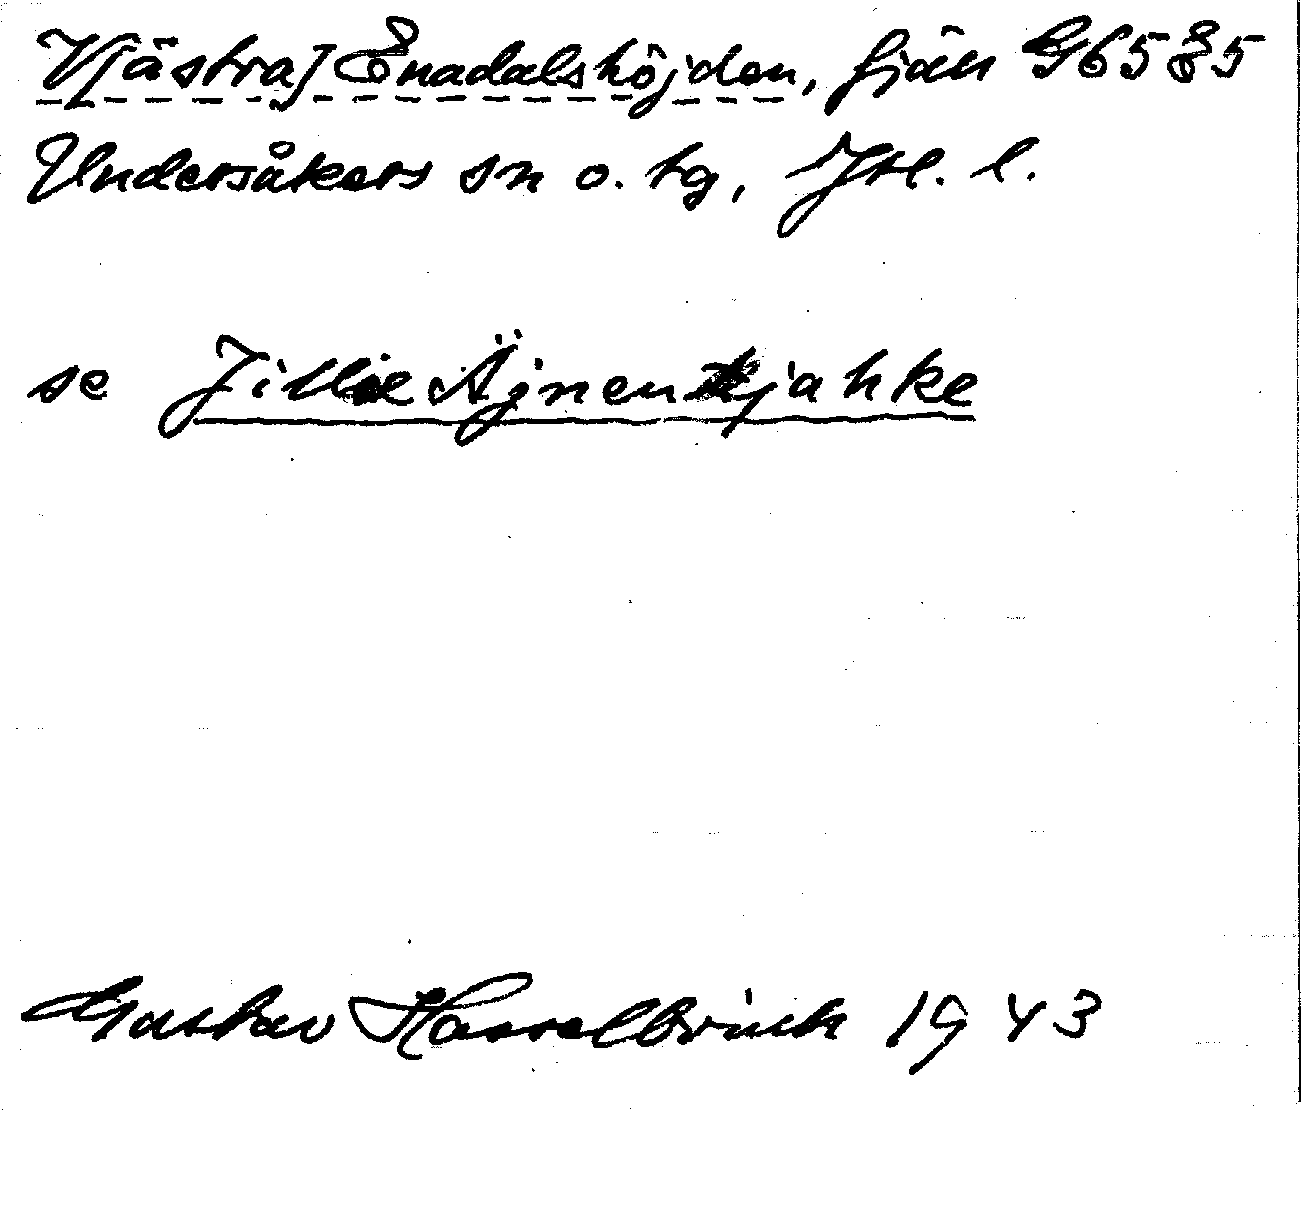 V[ästra] Enadalshöjden, fjäll G6585
Undersåkers sn o. tg, Jtl. l.
se Jillie Äjnentjahke
Gustav Hasselbrink 1943